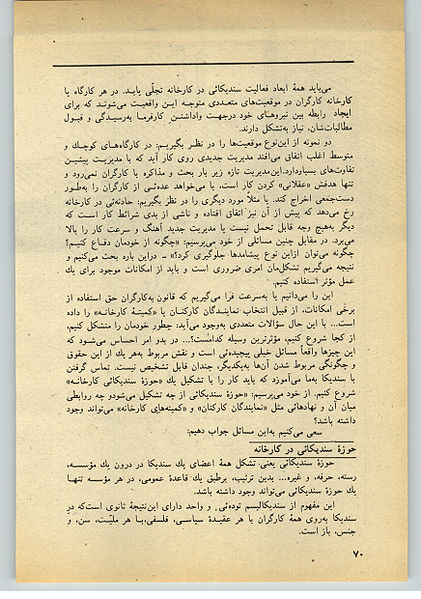 می‌باید همهٔ ابعاد فعالیت سندیکائی در کارخانه تجلّی یابـد. در هر کارگاه یا
کارخانه کارگران در موقعیت‌های متعـددی متوجـه ایـن واقعیت می‌شونـد که برای
ایجاد رابطه بین نیروهـای خود درجهـت واداشتـن کارفرمـا به‌رسیـدگی و قبـول
مطالبات‌شان، نیاز به‌تشکل دارند.
دو نمونه از این‌نوع موقعیت‌ها را در نظـر بگیریـم: در کارگاه‌هـای کوچـك و
متوسط اغلب اتفاق می‌افتد مدیریت جدیدی روی کار آید که با مدیریـت پیشیـن
تفاوت‌های بسیاردارد.این‌مدیریت تازه زیر بار بحث و مذاکره با کارگران نمی‌رود و
تنها هدفش «عقلانی» کردن کار است، یا می‌خواهد عده‌ئی از کارگران را به‌طور
دست‌جمعی اخراج کند. یا مثلاً مورد دیگری را در نظر بگیریم: حادثه‌ئی در کارخانه
رخ می‌دهد که پیش از آن نیز اتفاق افتاده و ناشی از بدی شرائط کار است که
دیگر به‌هیچ وجه قابل تحمل نیست یا مدیریت جدید آهنگ و سرعت کار را بالا
می‌برد. در مقابل چنین مسائلی از خود می‌پرسیم: «چگونه از خودمان دفـاع کنیـم؟
چگونه می‌توان ازاین نوع پیشامدها جلوگیری کرد؟» ـ دراین باره بحث می‌کنیم و
نتیجه می‌گیریم تشکل‌مان امری ضرروری است و باید از امکانات موجود برای یك
عمل مؤثر استفاده کنیم.
این را می‌دانیم یا به‌سرعت فرا می‌گیریم که قانون به‌کارگران حق استفاده از
برخی امکانات، از قبیل انتخاب نماینـدگان کارکنـان یا «کمیتـهٔ کارخانـه» را داده
است... با این حال سؤالات متعددی به‌وجود می‌آید: چطور خودمان را متشکل کنیم،
از کجا شروع کنیم، مؤثرترین وسیله کدامست؟... در بدو امر احساس می‌شـود که
این چیزها واقعاً مسائل خیلی پیچیده‌ئی است و نقش مربوط به‌هر یك از این حقوق
و چگونگی مربوط شدن آن‌ها به‌یکدیگر، چندان قابل تشخیص نیست. تماس گرفتن
با سندیکا به‌ما می‌آموزد که باید کار را با تشکیل یك «حوزهٔ سندیکائی کارخانـه»
شروع کنیم. از خود می‌پرسیم: «حوزهٔ سندیکائی از چه تشکیل می‌شودو چه روابطی
میان آن و نهادهائی مثل «نمایندگان کارکنان» و «کمیته‌های کارخانه» می‌تواند وجود
داشته باشد؟
سعی می‌کنیم به‌این مسائل جواب دهیم:
حوزهٔ سندیکائی در کارخانه
حوزهٔ سندیکائی یعنی تشکل همهٔ اعضای یك سندیکا در درون یك مؤسسـه،
رسته، حرفه، و غیره... بدین ترتیب، برطبق یك قاعدهٔ عمومی، در هر مؤسسه تنهـا
یك حوزهٔ سندیکائی می‌تواند وجود داشته باشد.
این مفهوم از سندیکالیسم توده‌ئی و واحد دارای این‌نتیجهٔ ثانوی است‌که در
سندیکا به‌روی همهٔ کارگران با هر عقیـدهٔ سیاسـی، فلسفی،با هر ملیّـت، سن، و
جنس، باز است.
۷۰